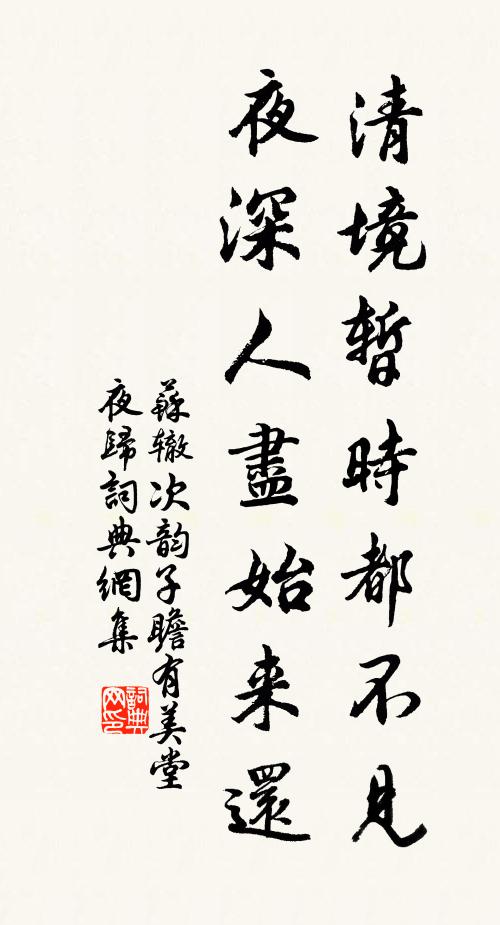 清境暫時都不見
夜深人盡始来還
蘇轍次韵子瞻有美堂
夜歸詞典網集
詞典
网印